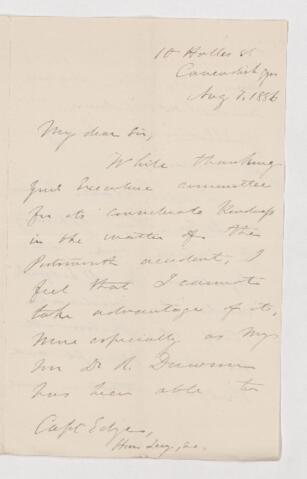 10 Holles St
Cavendish Sqre
Aug 7. 1886
My dear Sir,
While thanking
your Executive Committee
for its considerate kindness
in the matter of the
Portsmouth accident, I
feel that I cannot
take advantage of its,
more especially as my
son Dr R.
has been able to
Capt Edge,
Hon Secy, &c.